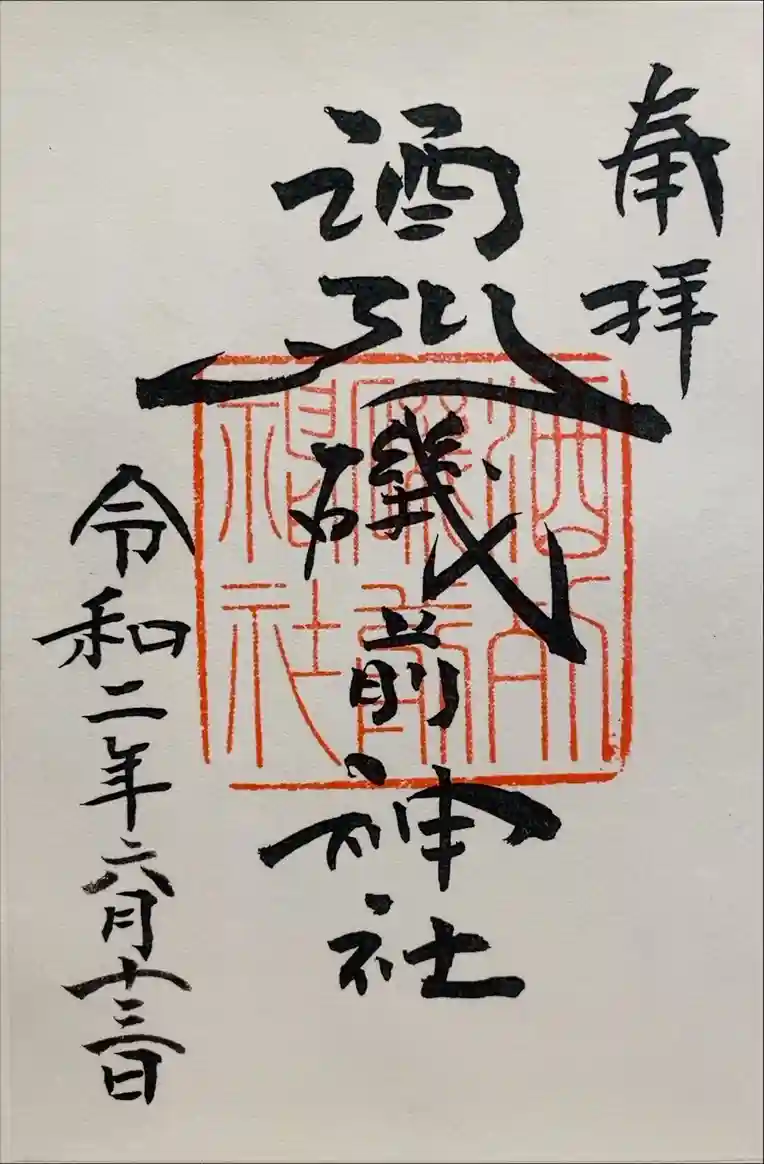 奉拝
酒列磯前神社
酒列
磯前
神社
令和二年六月十三日